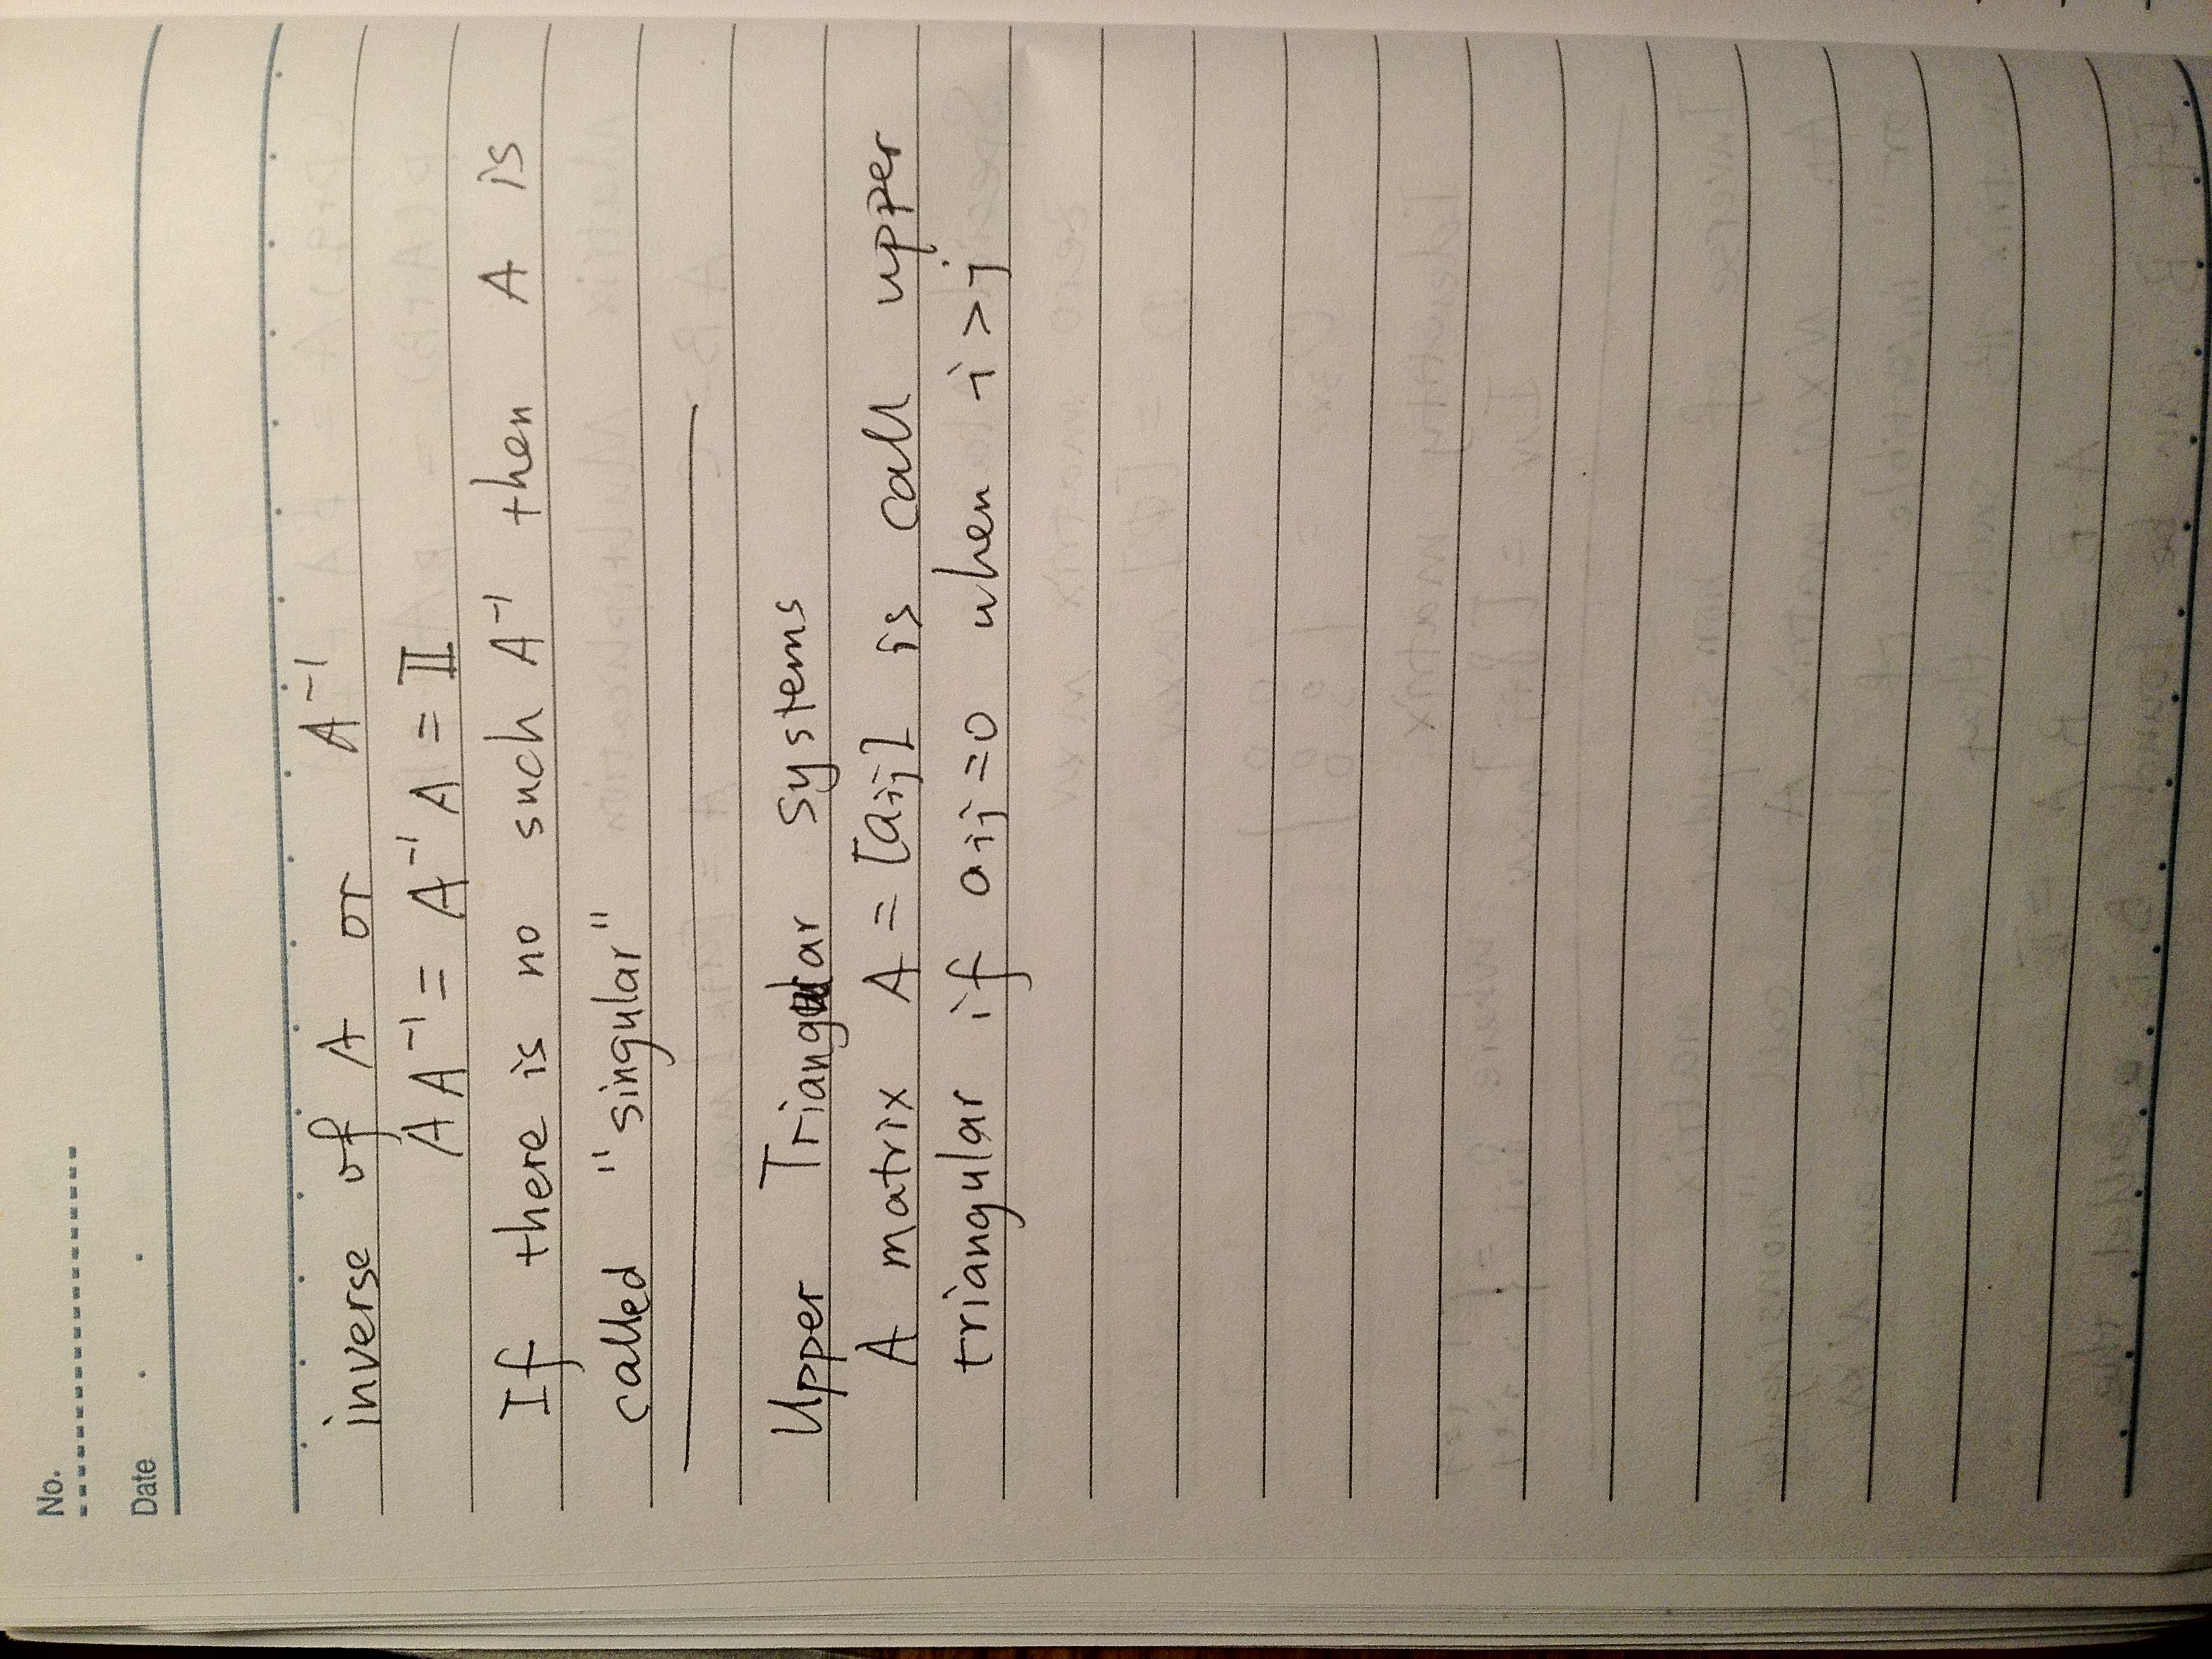 No.
Date
inverse of A or A⁻¹
A A⁻¹ = A⁻¹ A = 𝕀
If there is no such A⁻¹ then A is
called "singular"
Upper Triangular systems
A matrix A = [aij] is call upper
triangular if aij = 0 when i > j